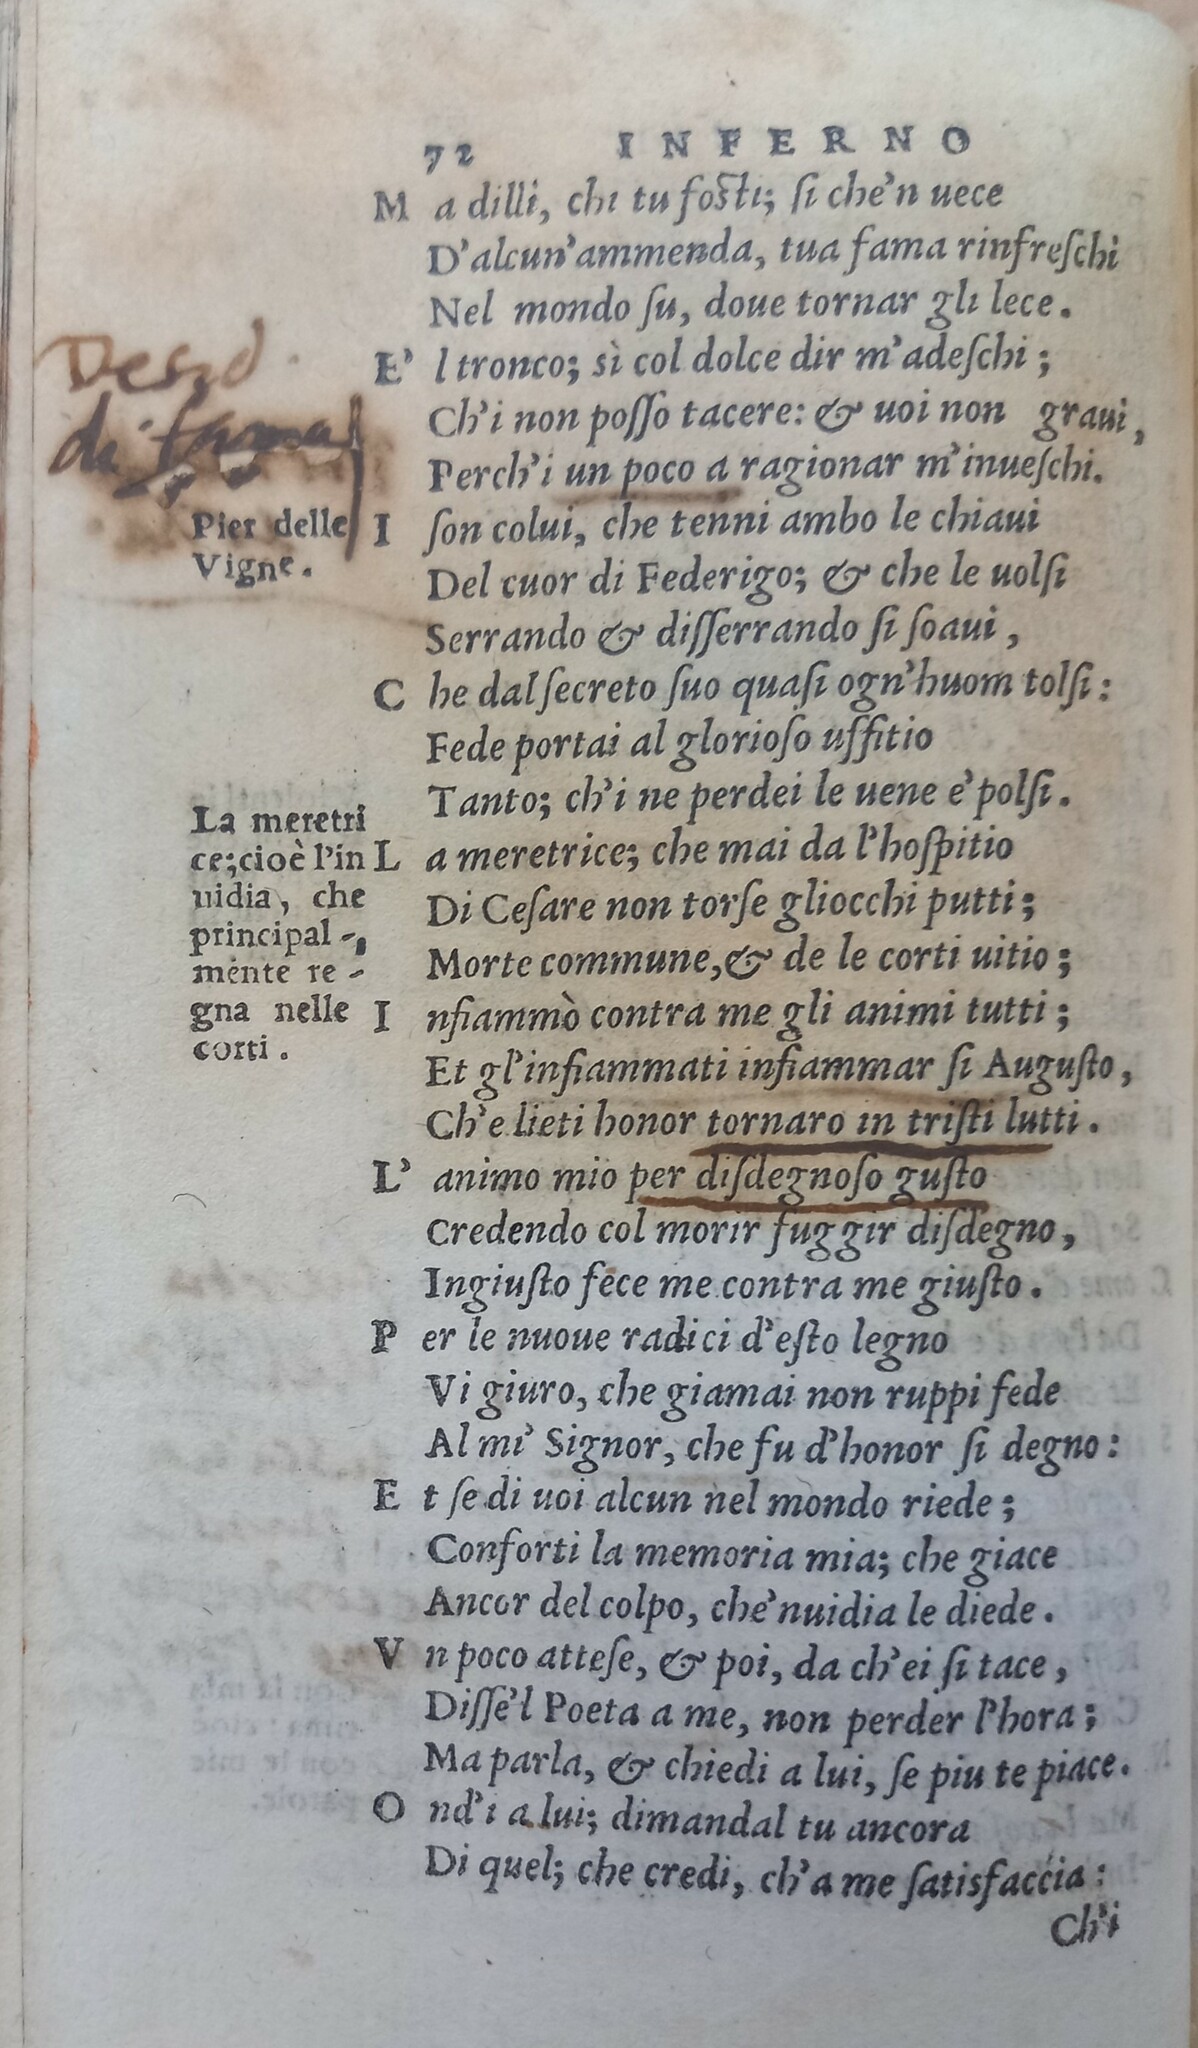 72 INFERNO
Ma dilli, chi tu foſti; ſi che'n uece
D'alcun'ammenda, tua fama rinfreſchi
Nel mondo ſu, doue tornar gli lece.
E'l tronco; sì col dolce dir m'adeſchi;
Ch'i non poſſo tacere: & uoi non graui,
Perch'i un poco a ragionar m'inueſchi.
I ſon colui, che tenni ambo le chiaui
Del cuor di Federigo; & che le uolſi
Serrando & diſſerrando ſi ſoaui,
Che dal ſecreto ſuo quaſi ogn'huom tolſi:
Fede portai al glorioſo uffitio
Tanto; ch'i ne perdei le uene e' polſi.
La meretrice; che mai da l'hoſpitio
Di Ceſare non torſe gliocchi putti;
Morte commune, & de le corti uitio;
Infiammò contra me gli animi tutti;
Et gl'infiammati infiammar ſi Auguſto,
Ch'e lieti honor tornaro in triſti lutti.
L'animo mio per diſdegnoſo guſto
Credendo col morir fuggir diſdegno,
Ingiuſto fece me contra me giuſto.
Per le nuoue radici d'eſto legno
Vi giuro, che giamai non ruppi fede
Al mi' Signor, che fu d'honor ſi degno:
Et ſe di uoi alcun nel mondo riede;
Conforti la memoria mia; che giace
Ancor del colpo, che'nuidia le diede.
Vn poco atteſe, & poi, da ch'ei ſi tace,
Diſſe'l Poeta a me, non perder l'hora;
Ma parla, & chiedi a lui, ſe piu te piace.
Ond'i a lui; dimandal tu ancora
Di quel; che credi, ch'a me ſatisfaccia:
Ch'i
di fama
Pier delle
Vigne.
La meretri
ce; cioè l'in
uidia, che
principal-
mente re-
gna nelle
corti.